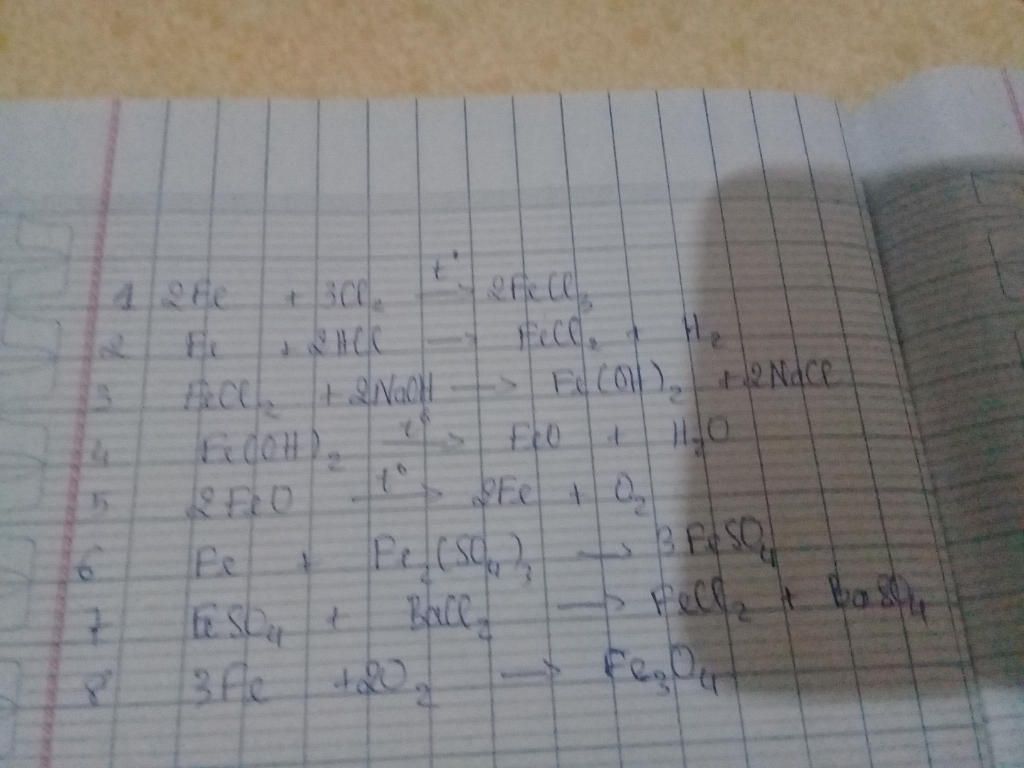 1 2Fe + 3Cl₂ —t°→ 2FeCl₃
2 Fe + 2HCl → FeCl₂ + H₂
3 FeCl₂ + 2NaOH → Fe(OH)₂ + 2NaCl
4 Fe(OH)₂ —t°→ FeO + H₂O
5 2FeO —t°→ 2Fe + O₂
6 Fe + Fe₂(SO₄)₃ → 3FeSO₄
7 FeSO₄ + BaCl₂ → FeCl₂ + BaSO₄
8 3Fe + 2O₂ → Fe₃O₄